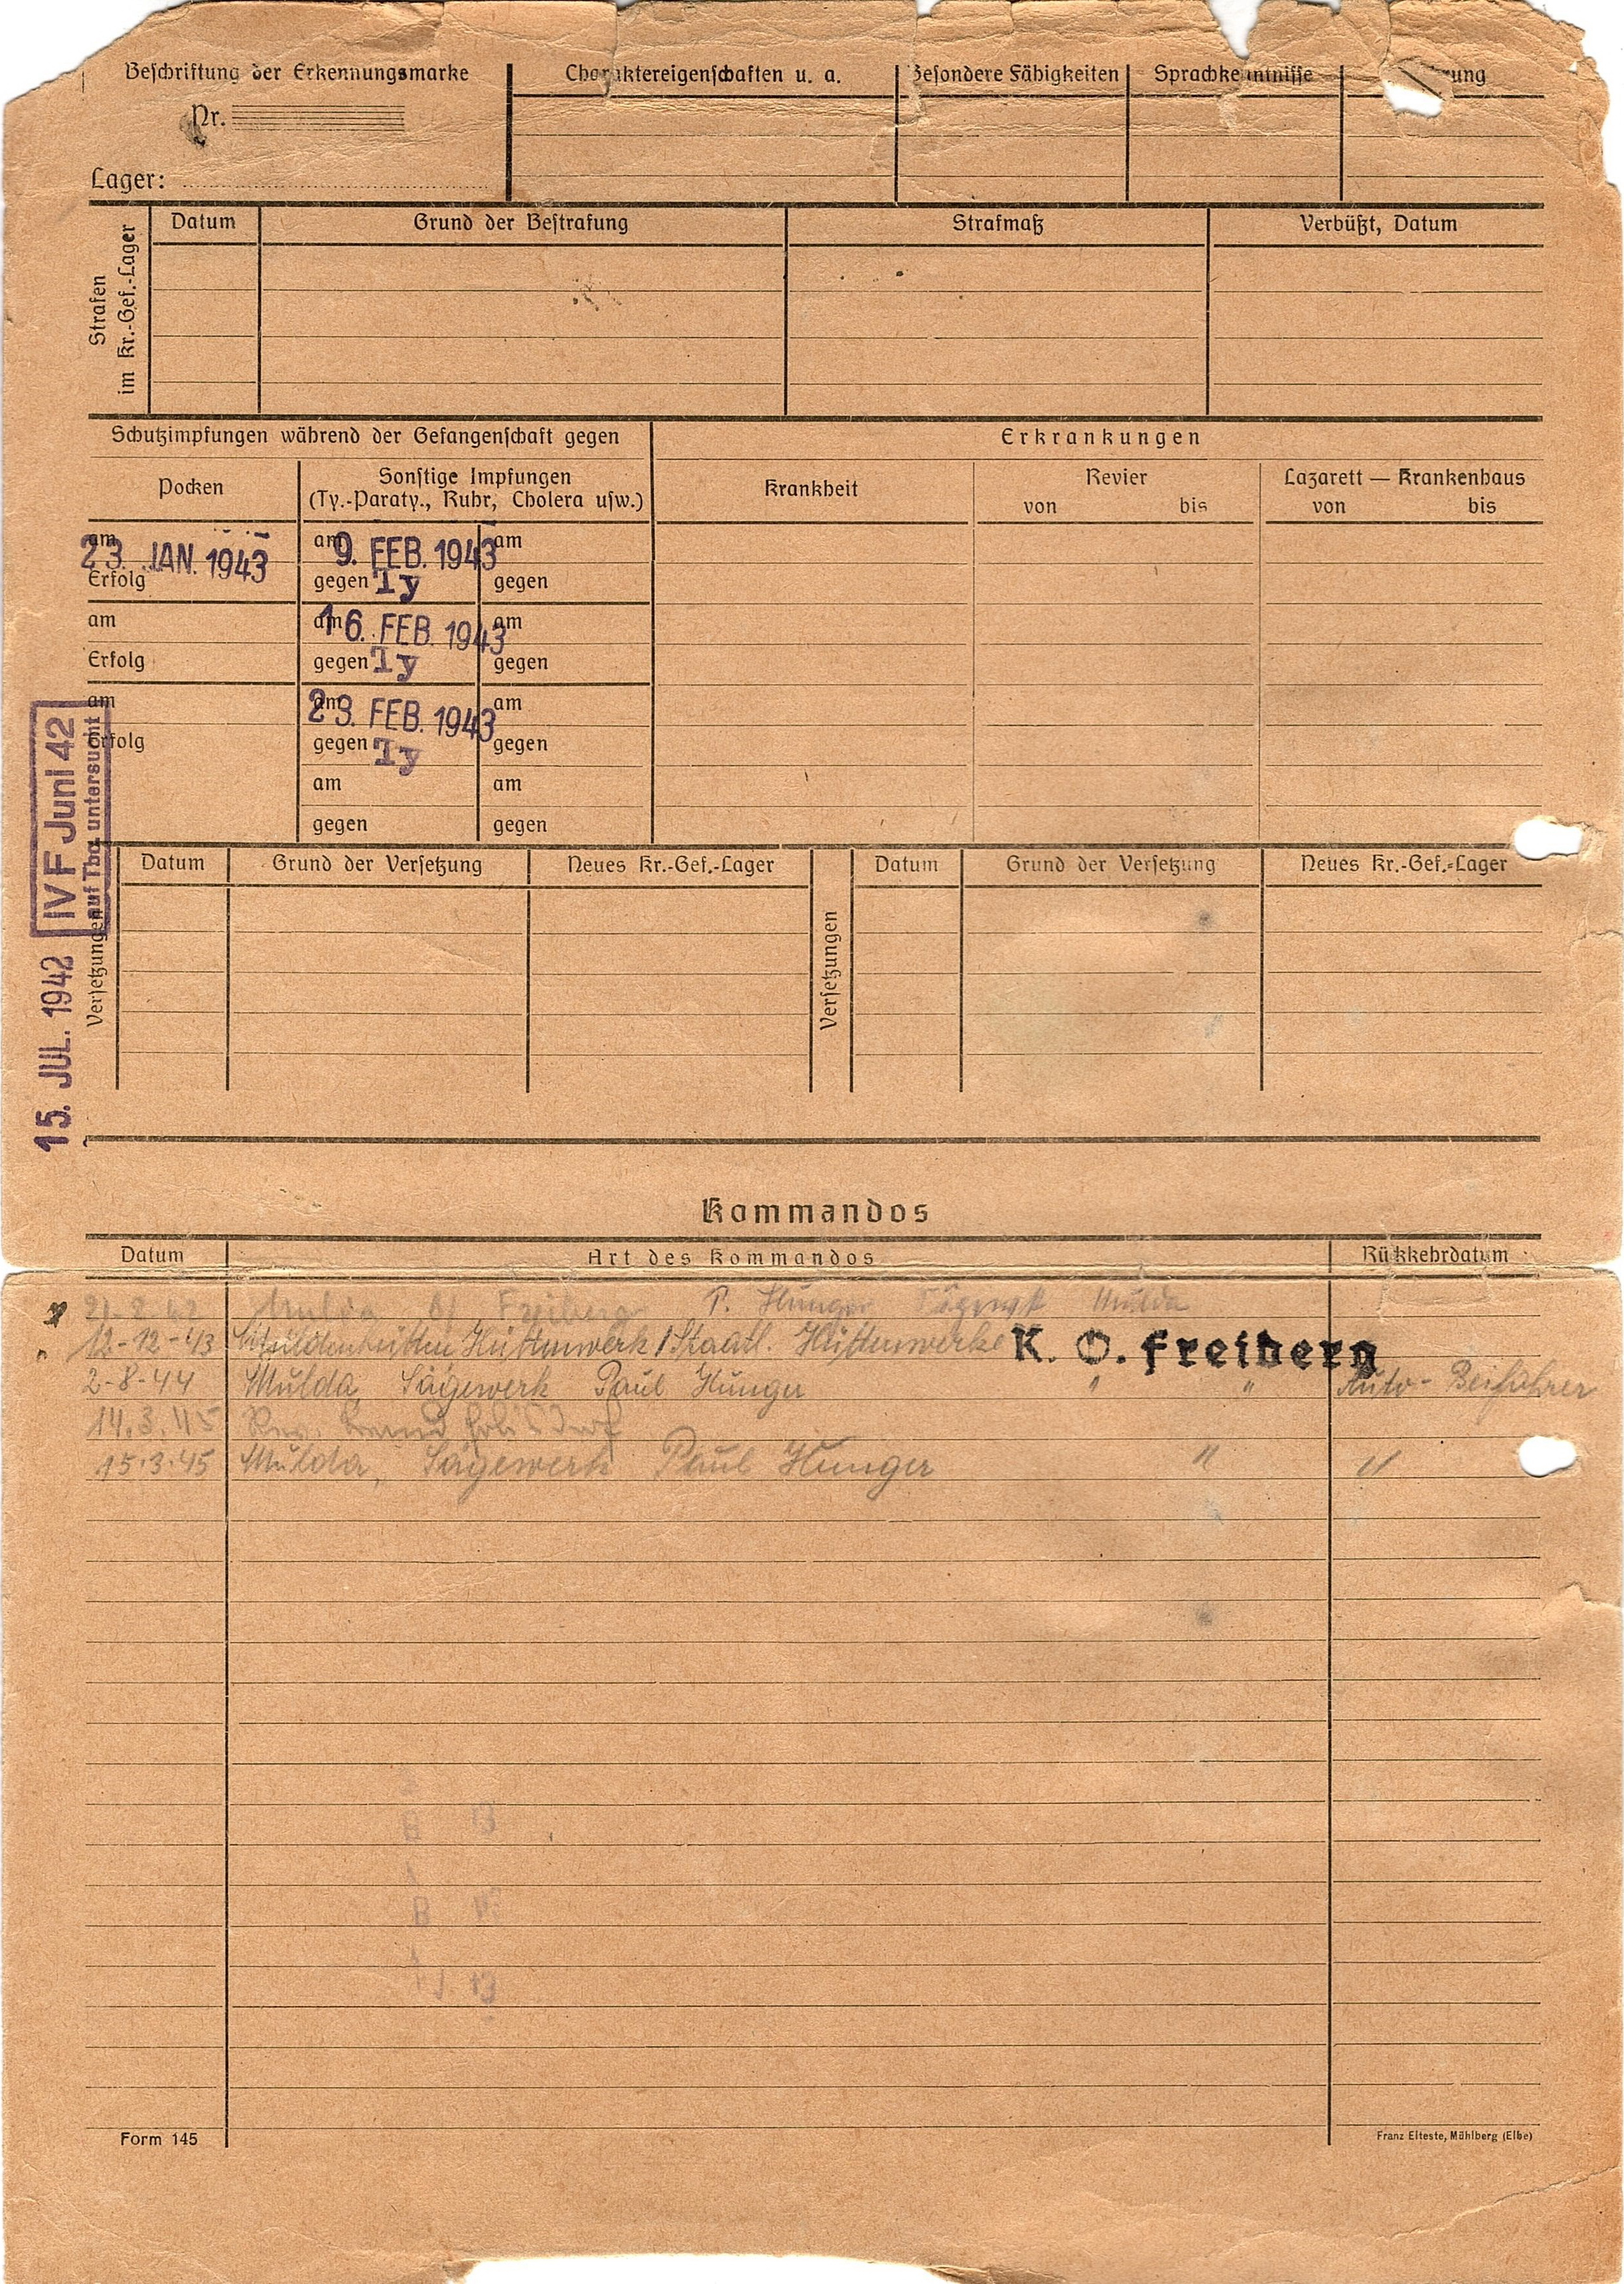 Beschriftung der Erkennungsmarke
Nr.
Lager:
Charaktereigenschaften u. a.
Besondere Fähigkeiten
Sprachkenntnisse
Strafen
im Kr.-Gef.-Lager
Datum
Grund der Bestrafung
Strafmaß
Verbüßt, Datum
Schutzimpfungen während der Gefangenschaft gegen
Pocken
Sonstige Impfungen
(Ty.-Paraty., Ruhr, Cholera usw.)
am 23. JAN. 1943
Erfolg
am
Erfolg
am
Erfolg
am 9. FEB. 1943
gegen Ty
am 16. FEB. 1943
gegen Ty
am 23. FEB. 1943
gegen Ty
am
gegen
am
gegen
am
gegen
am
gegen
am
gegen
Erkrankungen
Krankheit
Revier
von bis
Lazarett — Krankenhaus
von bis
IV F Juni 42
auf Tbc untersucht
15. JUL. 1942
Versetzungen
Datum
Grund der Versetzung
Neues Kr.-Gef.-Lager
Versetzungen
Datum
Grund der Versetzung
Neues Kr.-Gef.-Lager
Kommandos
Datum
Art des Kommandos
Rückkehrdatum
Mulda Freiberg P. Hunger Sägewerk Mulda
" 12-12-43 Muldenhütten Hüttenwerk / Staatl. Hüttenwerke K. O. Freiberg
2-8-44 Mulda Sägewerk Paul Hunger " " Auto-Beifahrer
14.3.45
15.3.45 Mulda, Sägewerk Paul Hunger " "
Form 145
Franz Elteste, Mühlberg (Elbe)